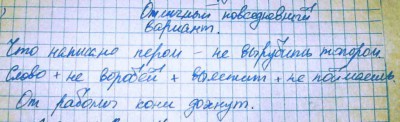 Отличный повседневный
вариант.
Что написано пером – не вырубишь топором.
Слово + не воробей + вылетит + не поймаешь.
От работы кони дохнут.